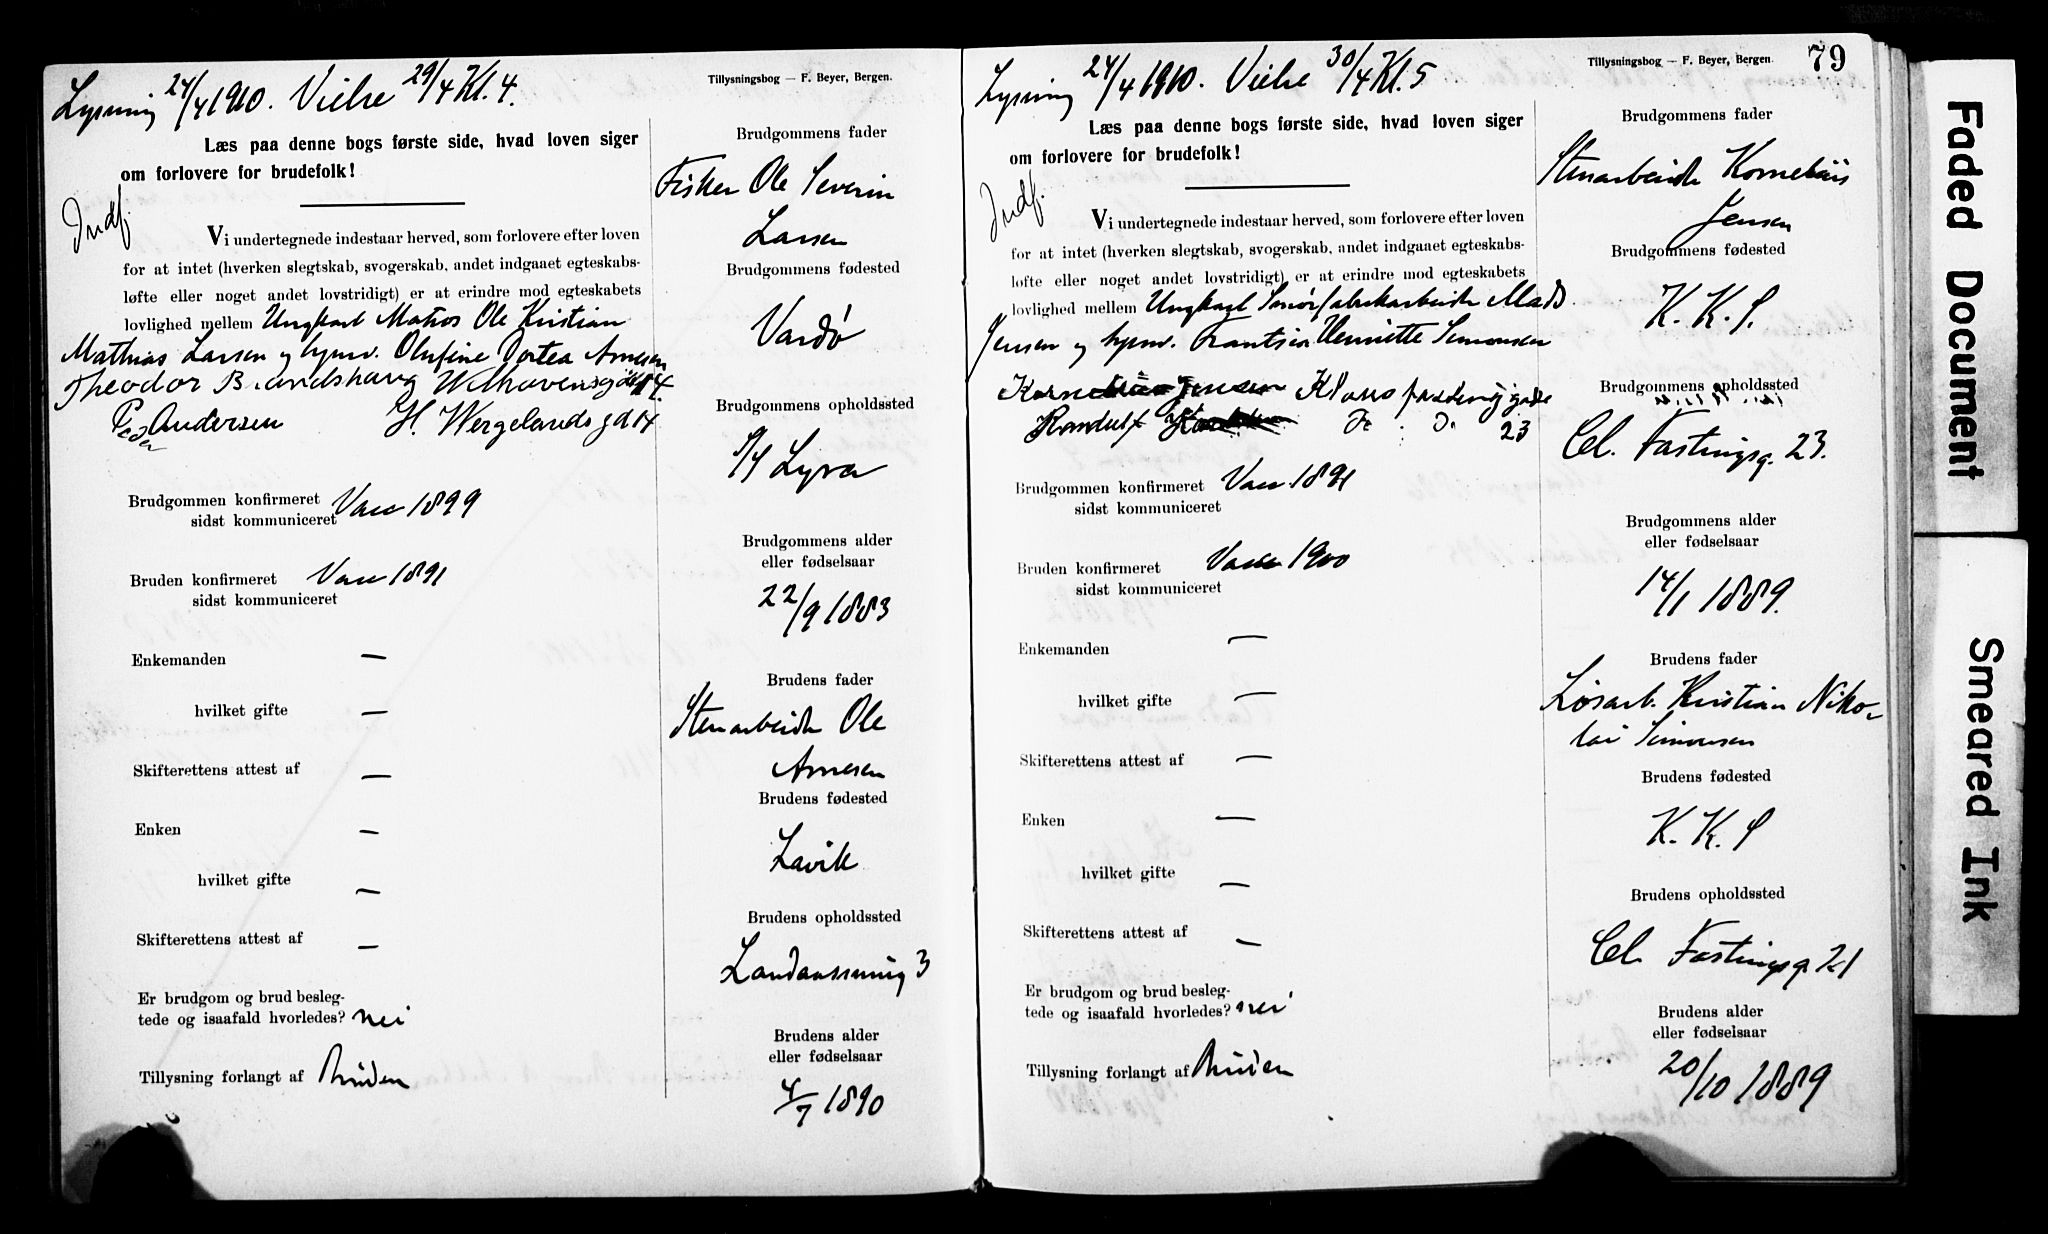 Lysning 24/4 1910. Vielse 29/4 Kl. 4.
Tillysningsbog — F. Beyer, Bergen.
Læs paa denne bogs første side, hvad loven siger
om forlovere for brudefolk!
Indf.
Vi undertegnede indestaar herved, som forlovere efter loven
for at intet (hverken slegtskab, svogerskab, andet indgaaet egteskabs-
løfte eller noget andet lovstridigt) er at erindre mod egteskabets
lovlighed mellem Ungkarl Matros Ole Kristian
Mathias Larsen og hpmv. Olufine Dortea Arnesen
Theodor Wilhavensgd 14
Peder Andersen H. Wergelandsgd 14
Brudgommen konfirmeret Vaar 1899
sidst kommuniceret
Bruden konfirmeret Vaar 1891
sidst kommuniceret
Enkemanden —
hvilket gifte —
Skifterettens attest af —
Enken —
hvilket gifte —
Skifterettens attest af —
Er brudgom og brud besleg-
tede og isaafald hvorledes? nei
Tillysning forlangt af Bruden
Brudgommens fader
Fisker Ole Severin
Larsen
Brudgommens fødested
Vardø
Brudgommens opholdssted
Lyra
Brudgommens alder
eller fødselsaar
22/9 1883
Brudens fader
Stenarbeider Ole
Arnesen
Brudens fødested
Lavik
Brudens opholdssted
Landaassving 3
Brudens alder
eller fødselsaar
4/7 1890
Lysning 24/4 1910. Vielse 30/4 Kl. 5
Tillysningsbog — F. Beyer, Bergen.
79
Læs paa denne bogs første side, hvad loven siger
om forlovere for brudefolk!
Indf.
Vi undertegnede indestaar herved, som forlovere efter loven
for at intet (hverken slegtskab, svogerskab, andet indgaaet egteskabs-
løfte eller noget andet lovstridigt) er at erindre mod egteskabets
lovlighed mellem Ungkarl Smørfabrikarbeider Mads
Jensen og hpmv. Frantsia Henriette Simonsen
Kornelius Jensen Klaus
23
Brudgommen konfirmeret Vaar 1891
sidst kommuniceret
Bruden konfirmeret Vaar 1900
sidst kommuniceret
Enkemanden —
hvilket gifte —
Skifterettens attest af —
Enken —
hvilket gifte —
Skifterettens attest af —
Er brudgom og brud besleg-
tede og isaafald hvorledes? nei
Tillysning forlangt af Bruden
Brudgommens fader
Stenarbeider Kornelius
Jensen
Brudgommens fødested
K. K. S.
Brudgommens opholdssted
Cl. Fastingsg. 23.
Brudgommens alder
eller fødselsaar
14/1 1889.
Brudens fader
Løsarb. Kristian Niko-
lai Simonsen
Brudens fødested
K. K. S
Brudens opholdssted
Cl. Fastingsg 21
Brudens alder
eller fødselsaar
20/10 1889
Faded Document
Smeared Ink